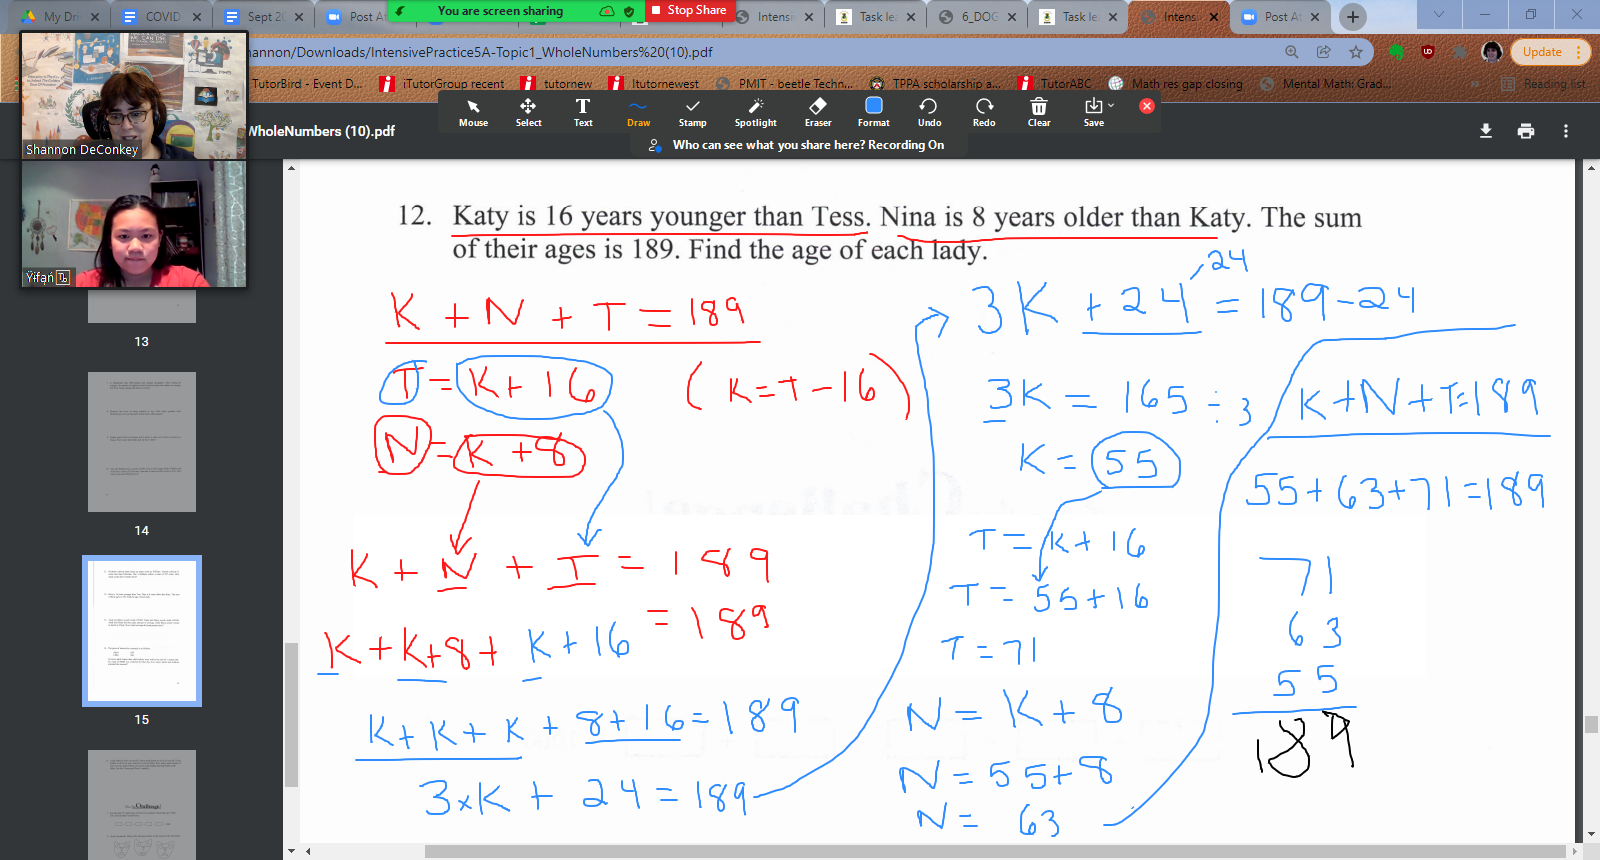 My Dri
COVID
Sept 20
Post At
You are screen sharing
Stop Share
Intensi
Task lea
6_DOG
Task le
Intensi
Post At
hannon/Downloads/IntensivePractice5A-Topic1_WholeNumbers%20(10).pdf
Update
TutorBird - Event D...
iTutorGroup recent
tutornew
Itutornewest
PMIT - beetle Techn...
TPPA scholarship a...
TutorABC
Math res gap closing
Mental Math: Grad...
Reading list
Mouse
Select
Text
Draw
Stamp
Spotlight
Eraser
Format
Undo
Redo
Clear
Save
WholeNumbers (10).pdf
Who can see what you share here? Recording On
Shannon DeConkey
13
14
15
12. Katy is 16 years younger than Tess. Nina is 8 years older than Katy. The sum
of their ages is 189. Find the age of each lady.
K + N + T = 189
T = K + 16
(K = T - 16)
N = K + 8
K + N + T = 189
= 189
K + K + 8 + K + 16
K + K + K + 8 + 16 = 189
3 x K + 24 = 189
-24
3K + 24 = 189 - 24
3K = 165 ÷ 3
K = 55
T = K + 16
T = 55 + 16
T = 71
N = K + 8
N = 55 + 8
N = 63
K + N + T = 189
55 + 63 + 71 = 189
71
63
55
189
Challenge!